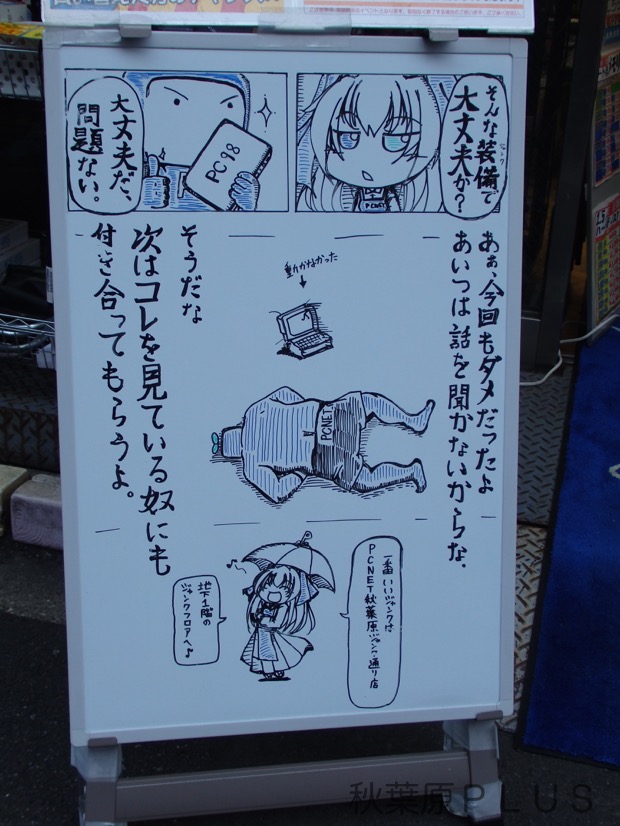 そんな装備で
ジャンク
大丈夫か?
PCNET
大丈夫だ、
問題ない。
PC98
あぁ、今回もダメだったよ
あいつは話を聞かないからな。
動かなかった
PCNET
そうだな
次はコレを見ている奴にも
付き合ってもらうよ。
一番いいジャンクは
PCNET秋葉原ジャンク通り店
地下1階の
ジャンクフロアへ♪
秋葉原PLUS